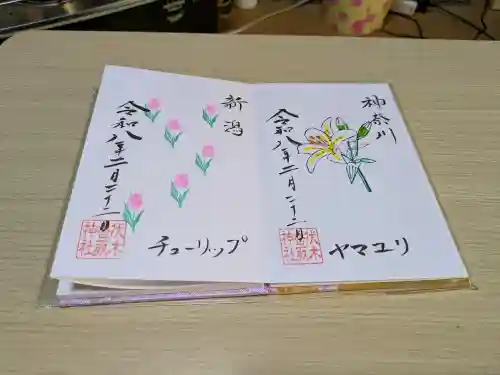 神奈川
令和八年二月二十二日
ヤマユリ
伏木
神社
新潟
令和八年二月二十二日
チューリップ
伏木
神社